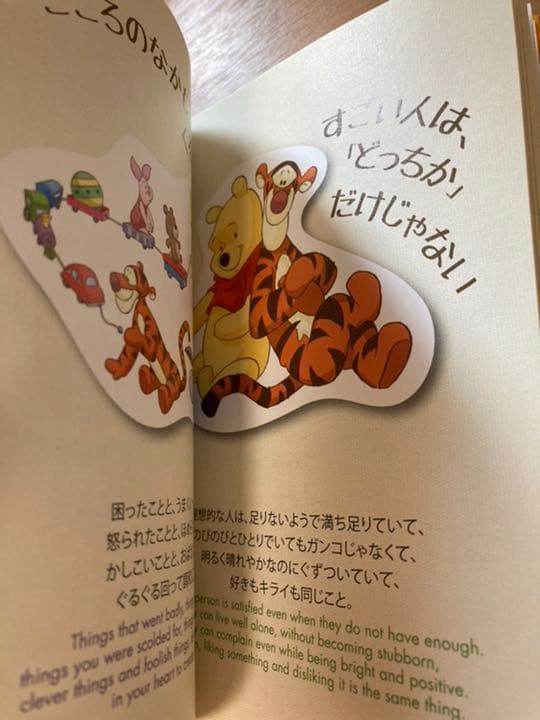 こころのなか
困ったことと、うま
怒られたことと、ほ
かしこいことと、お
ぐるぐる回って
Things that went badly,
things you were scolded for,
clever things and foolish things
in your heart to
すごい人は、
「どっちか」
だけじゃない
想的な人は、足りないようで満ち足りていて、
のびのびとひとりでいてもガンコじゃなくて、
明るく晴れやかなのにぐずついていて、
好きもキライも同じこと。
person is satisfied even when they do not have enough.
can live well alone, without becoming stubborn,
can complain even while being bright and positive.
liking something and disliking it is the same thing.